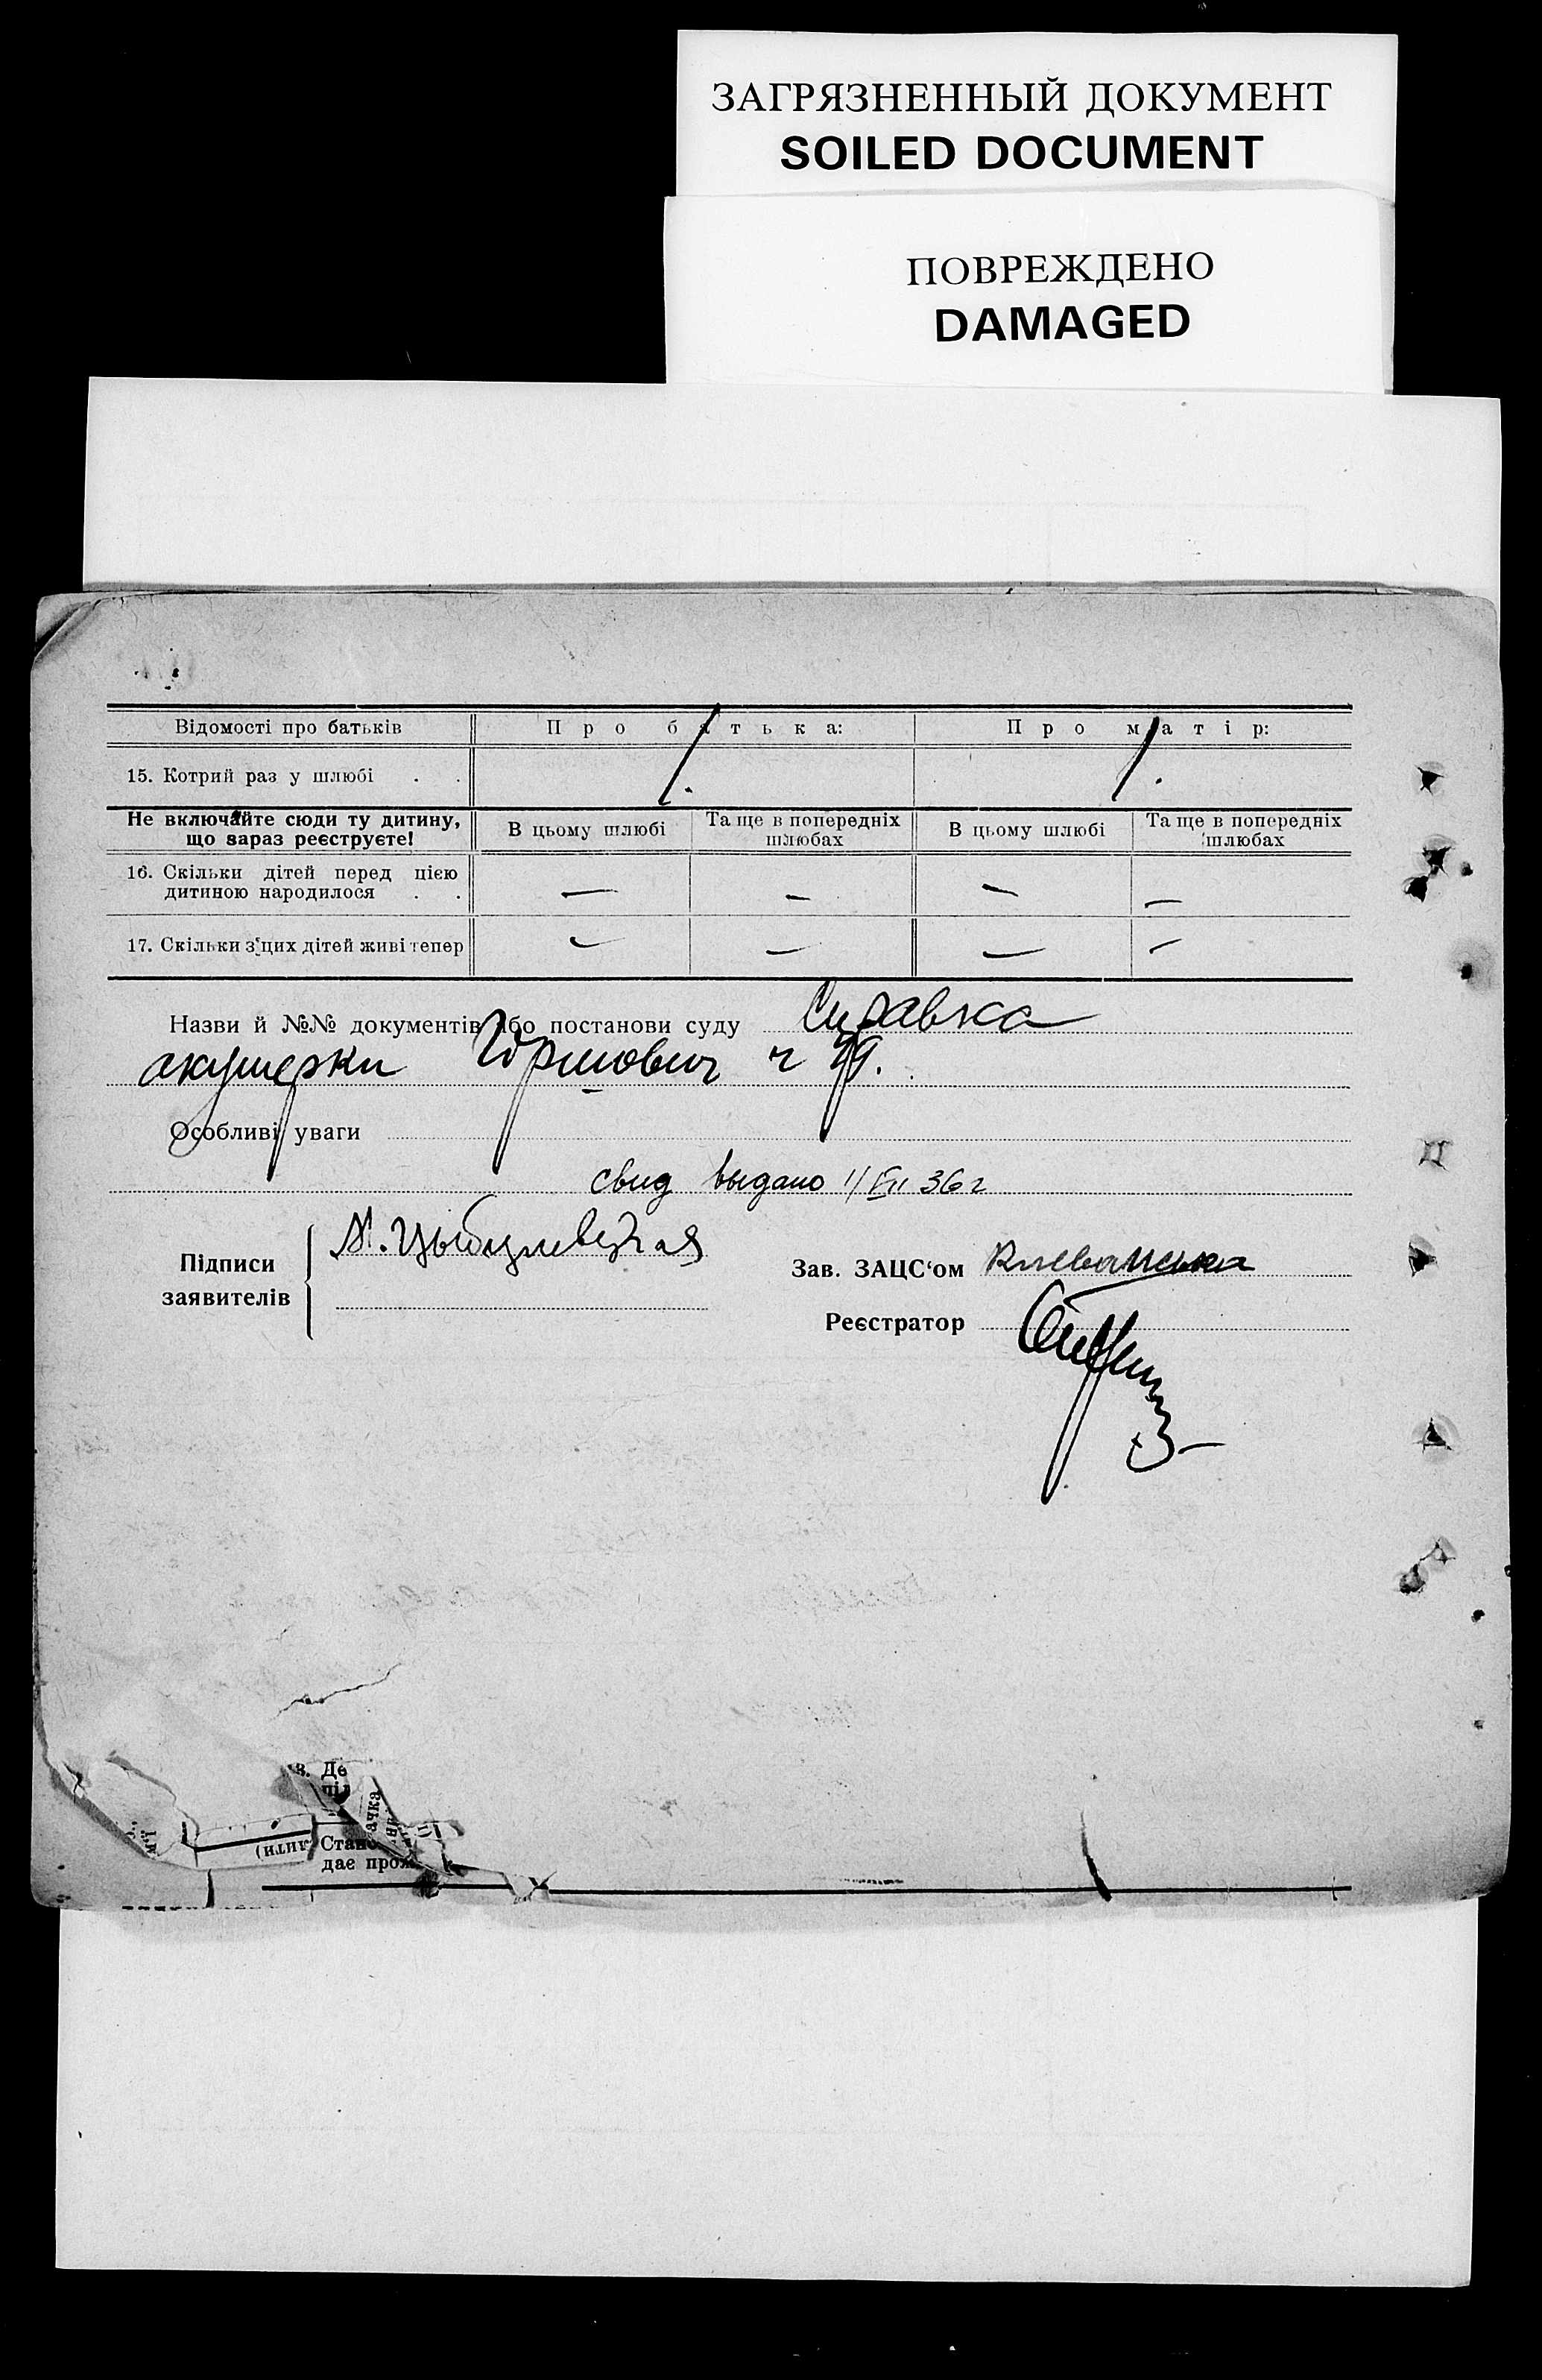 ЗАГРЯЗНЕННЫЙ ДОКУМЕНТ
SOILED DOCUMENT
ПОВРЕЖДЕНО
DAMAGED
Відомості про батьків Про батька: Про матір:
15. Котрий раз у шлюбі . . 1. 1.
Не включайте сюди ту дитину, що зараз реєструєте! В цьому шлюбі Та ще в попередніх шлюбах В цьому шлюбі Та ще в попередніх шлюбах
16. Скільки дітей перед цією
дитиною народилося . . — — — —
17. Скільки з'цих дітей живі тепер — — — —
Назви й №№ документів або постанови суду Справка
акушерки
Особливі уваги
свид выдано 1/VII 36 г
Підписи
заявителів
Зав. ЗАЦС‘ом Клеванська
Реєстратор
Де
ачка
Стан
дае прож